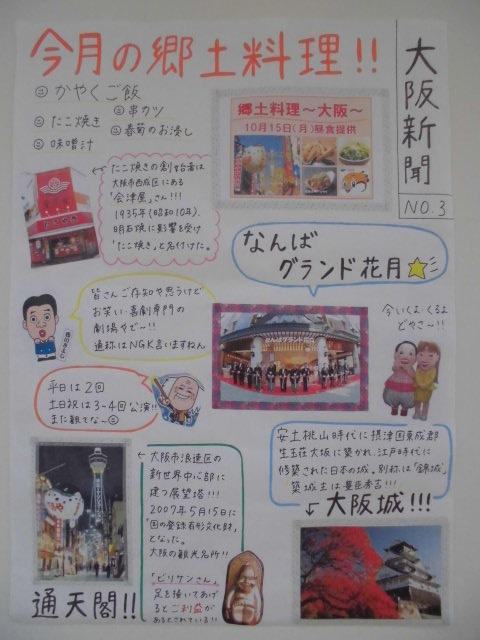 今月の郷土料理!!
大阪新聞
NO.3
かやくご飯
串カツ
たこ焼き
春菊のお浸し
味噌汁
郷土料理～大阪～
10月15日(月)昼食提供
たこ焼きの創始者は
大阪市西成区にある
「会津屋」さん!!!
1935年(昭和10年)、
明石焼に影響を受け
「たこ焼き」と名付けた。
なんば
グランド花月
皆さんご存知や思うけど
お笑い・喜劇専門の
劇場やで～!!
通称はNGK言いますねん
なんばグランド花月
今いくよ・くるよ
どやさ～!!
平日は2回
土日祝は3～4回公演!!
また観てな～
安土桃山時代に摂津国東成郡
生玉荘大坂に築かれ、江戸時代に
修築された日本の城。別称は「錦城」。
築城主は豊臣秀吉!!!
大阪城!!!
大阪市浪速区の
新世界中心部に
建つ展望塔!!!
2007年5月15日に
「国の登録有形文化財」
となった。
大阪の観光名所!!
「ビリケンさん」
足を掻いてあげ
るとご利益が
あるとされている!!
通天閣!!